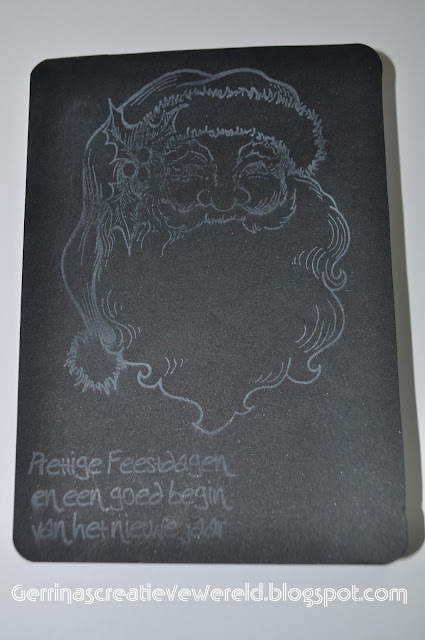 Prettige Feestdagen
en een goed begin
van het nieuwe jaar
Gerrinascreatievewereld.blogspot.com